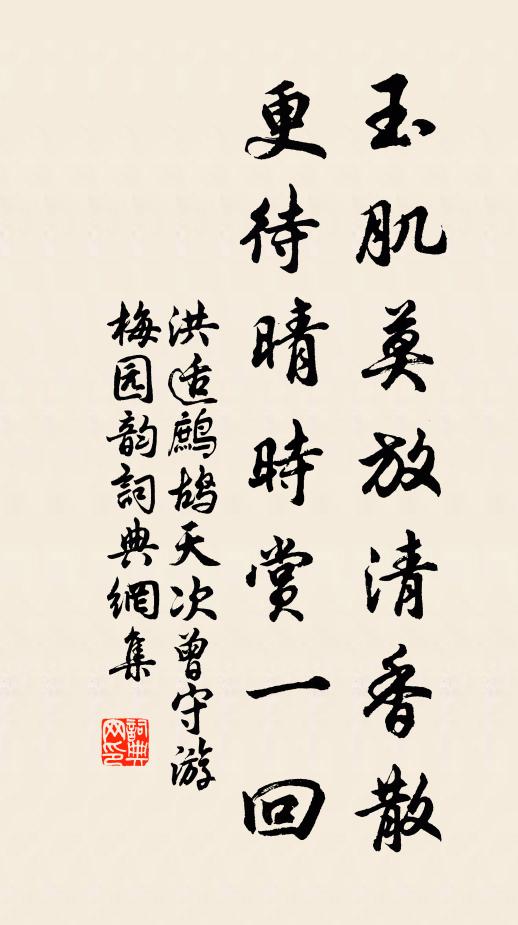 玉肌莫放清香散
更待晴時賞一回
洪适鷓鴣天次曾守游
梅园韵詞典網集
詞典网印